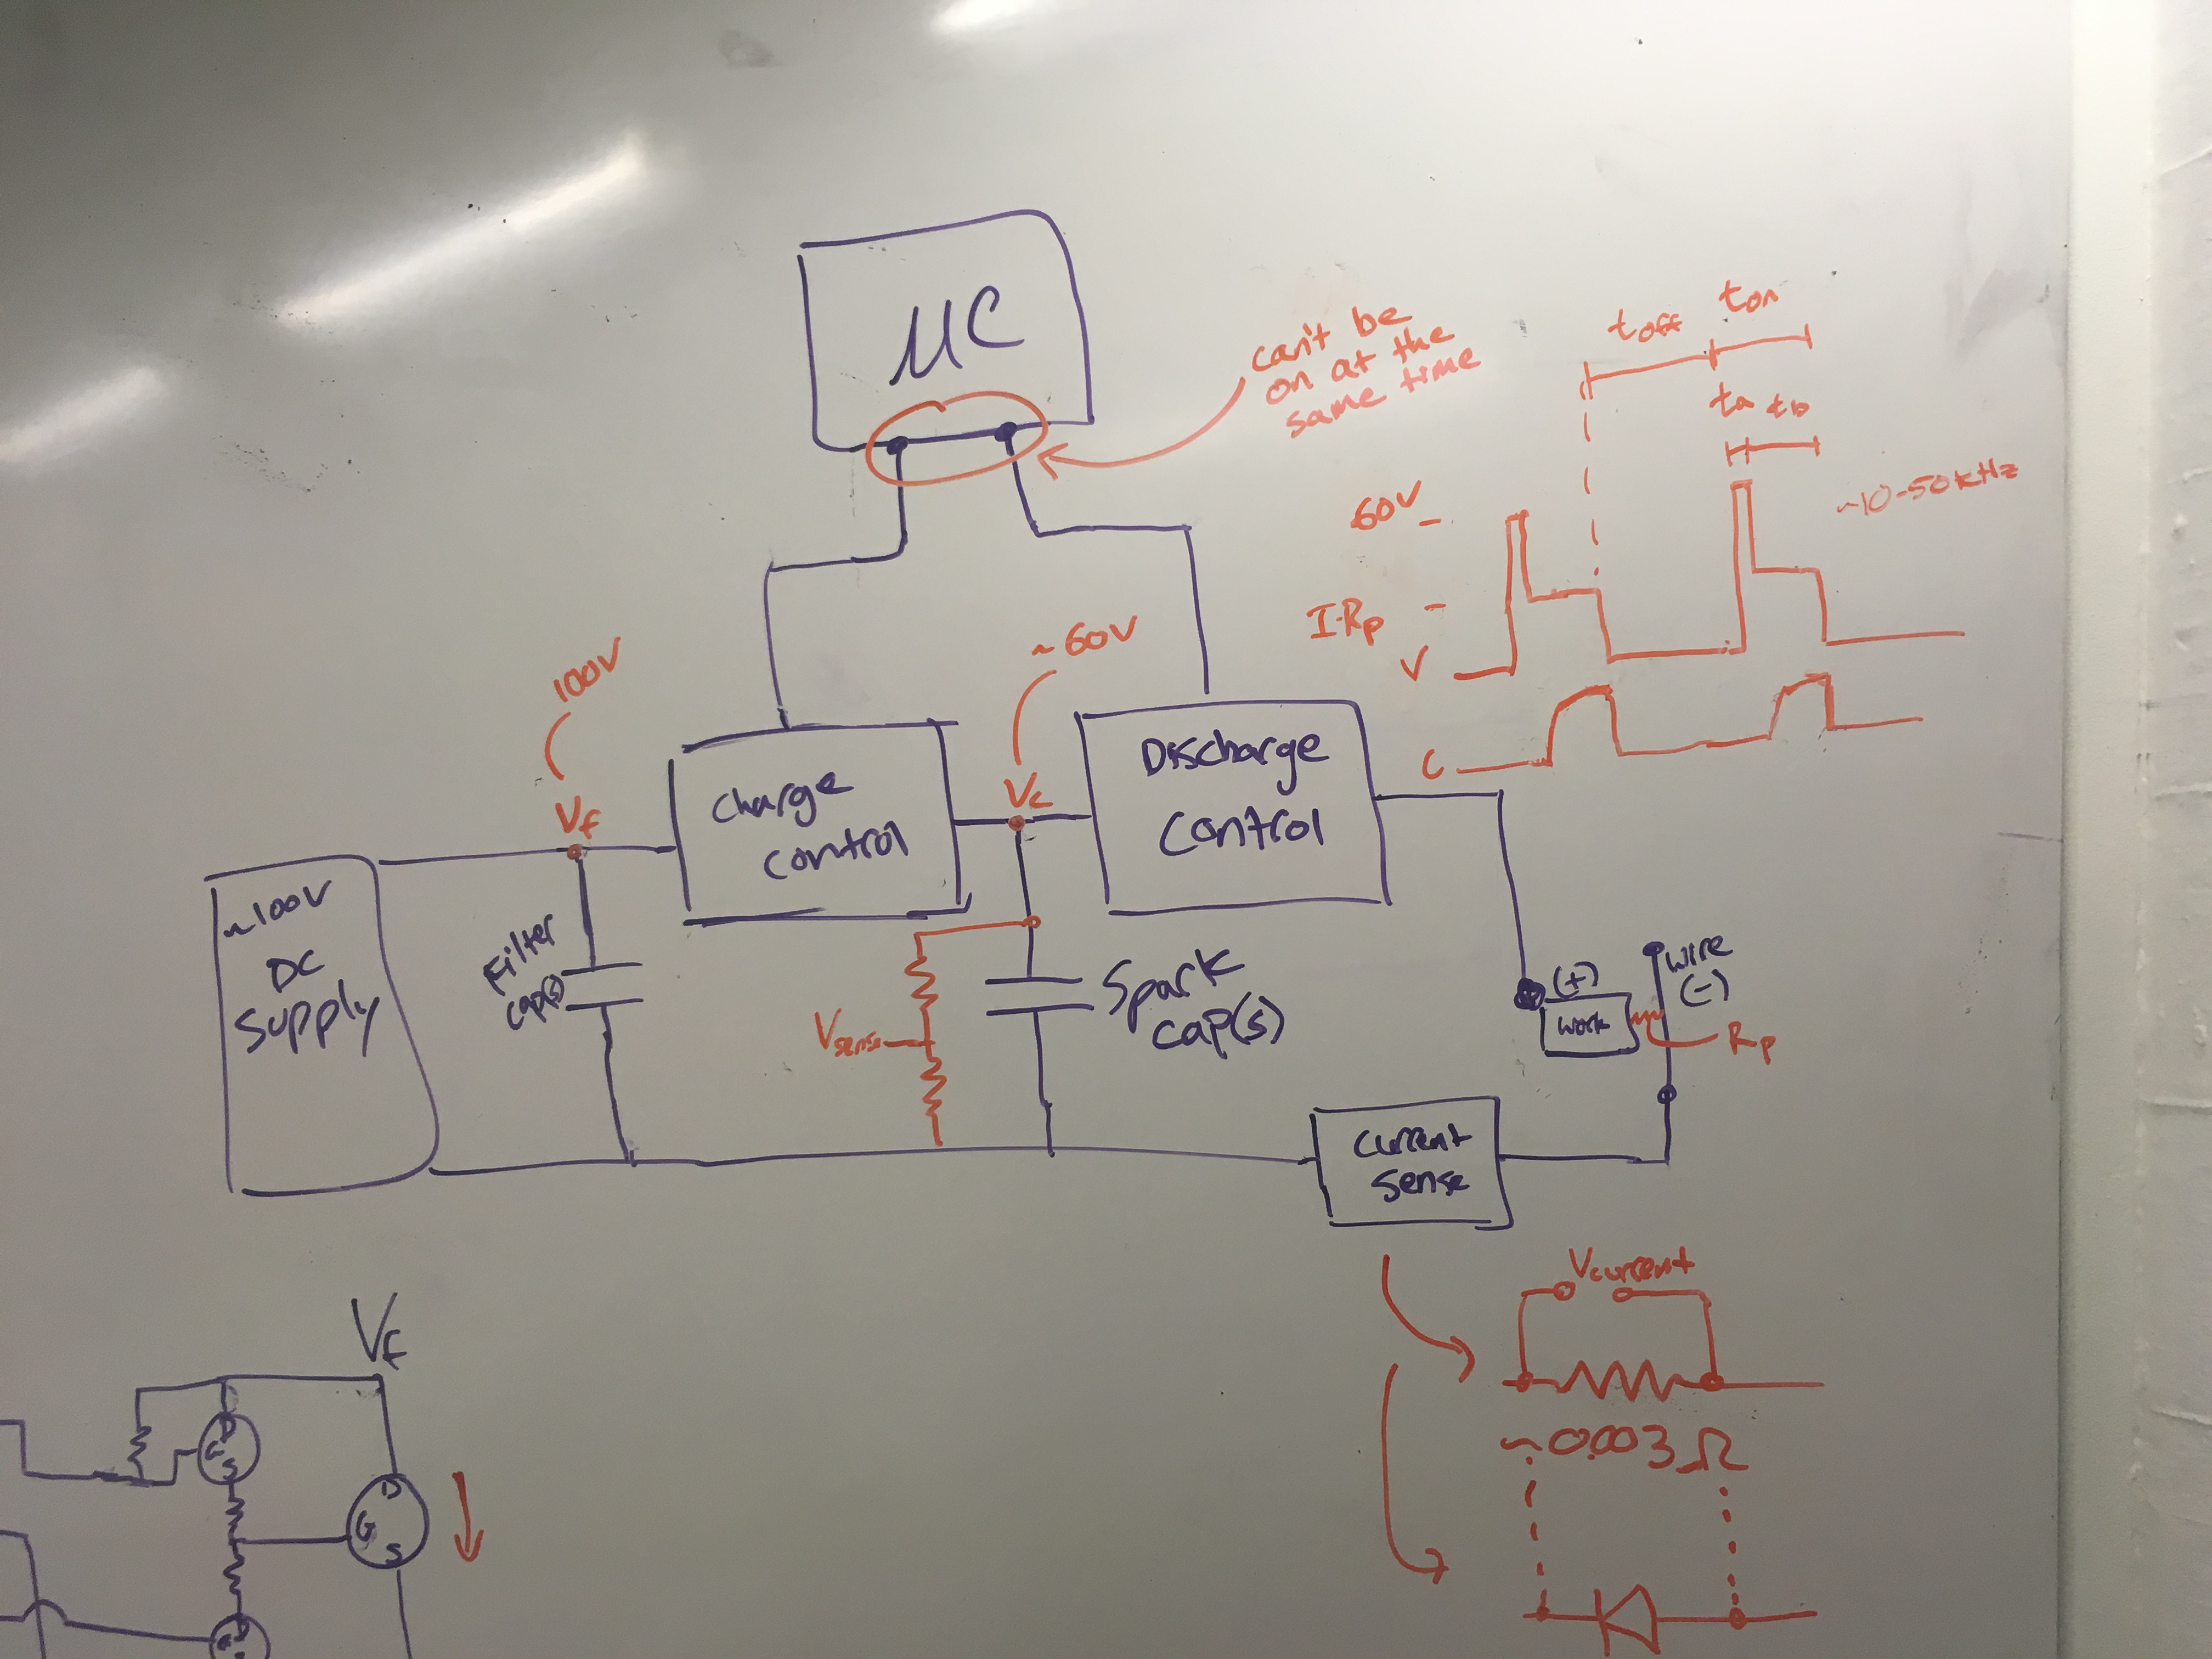 μC
can't be
on at the
same time
toff
ton
ta tb
~10-50kHz
60V
I·Rp
V
C
100V
Vf
~60V
Vc
Charge
Control
Discharge
Control
~100V
DC
Supply
Filter
cap(s)
Vsense
Spark
cap(s)
(+)
work
wire
(-)
Rp
Current
Sense
Vcurrent
~0.003 Ω
Vf
D
G
S
D
G
S